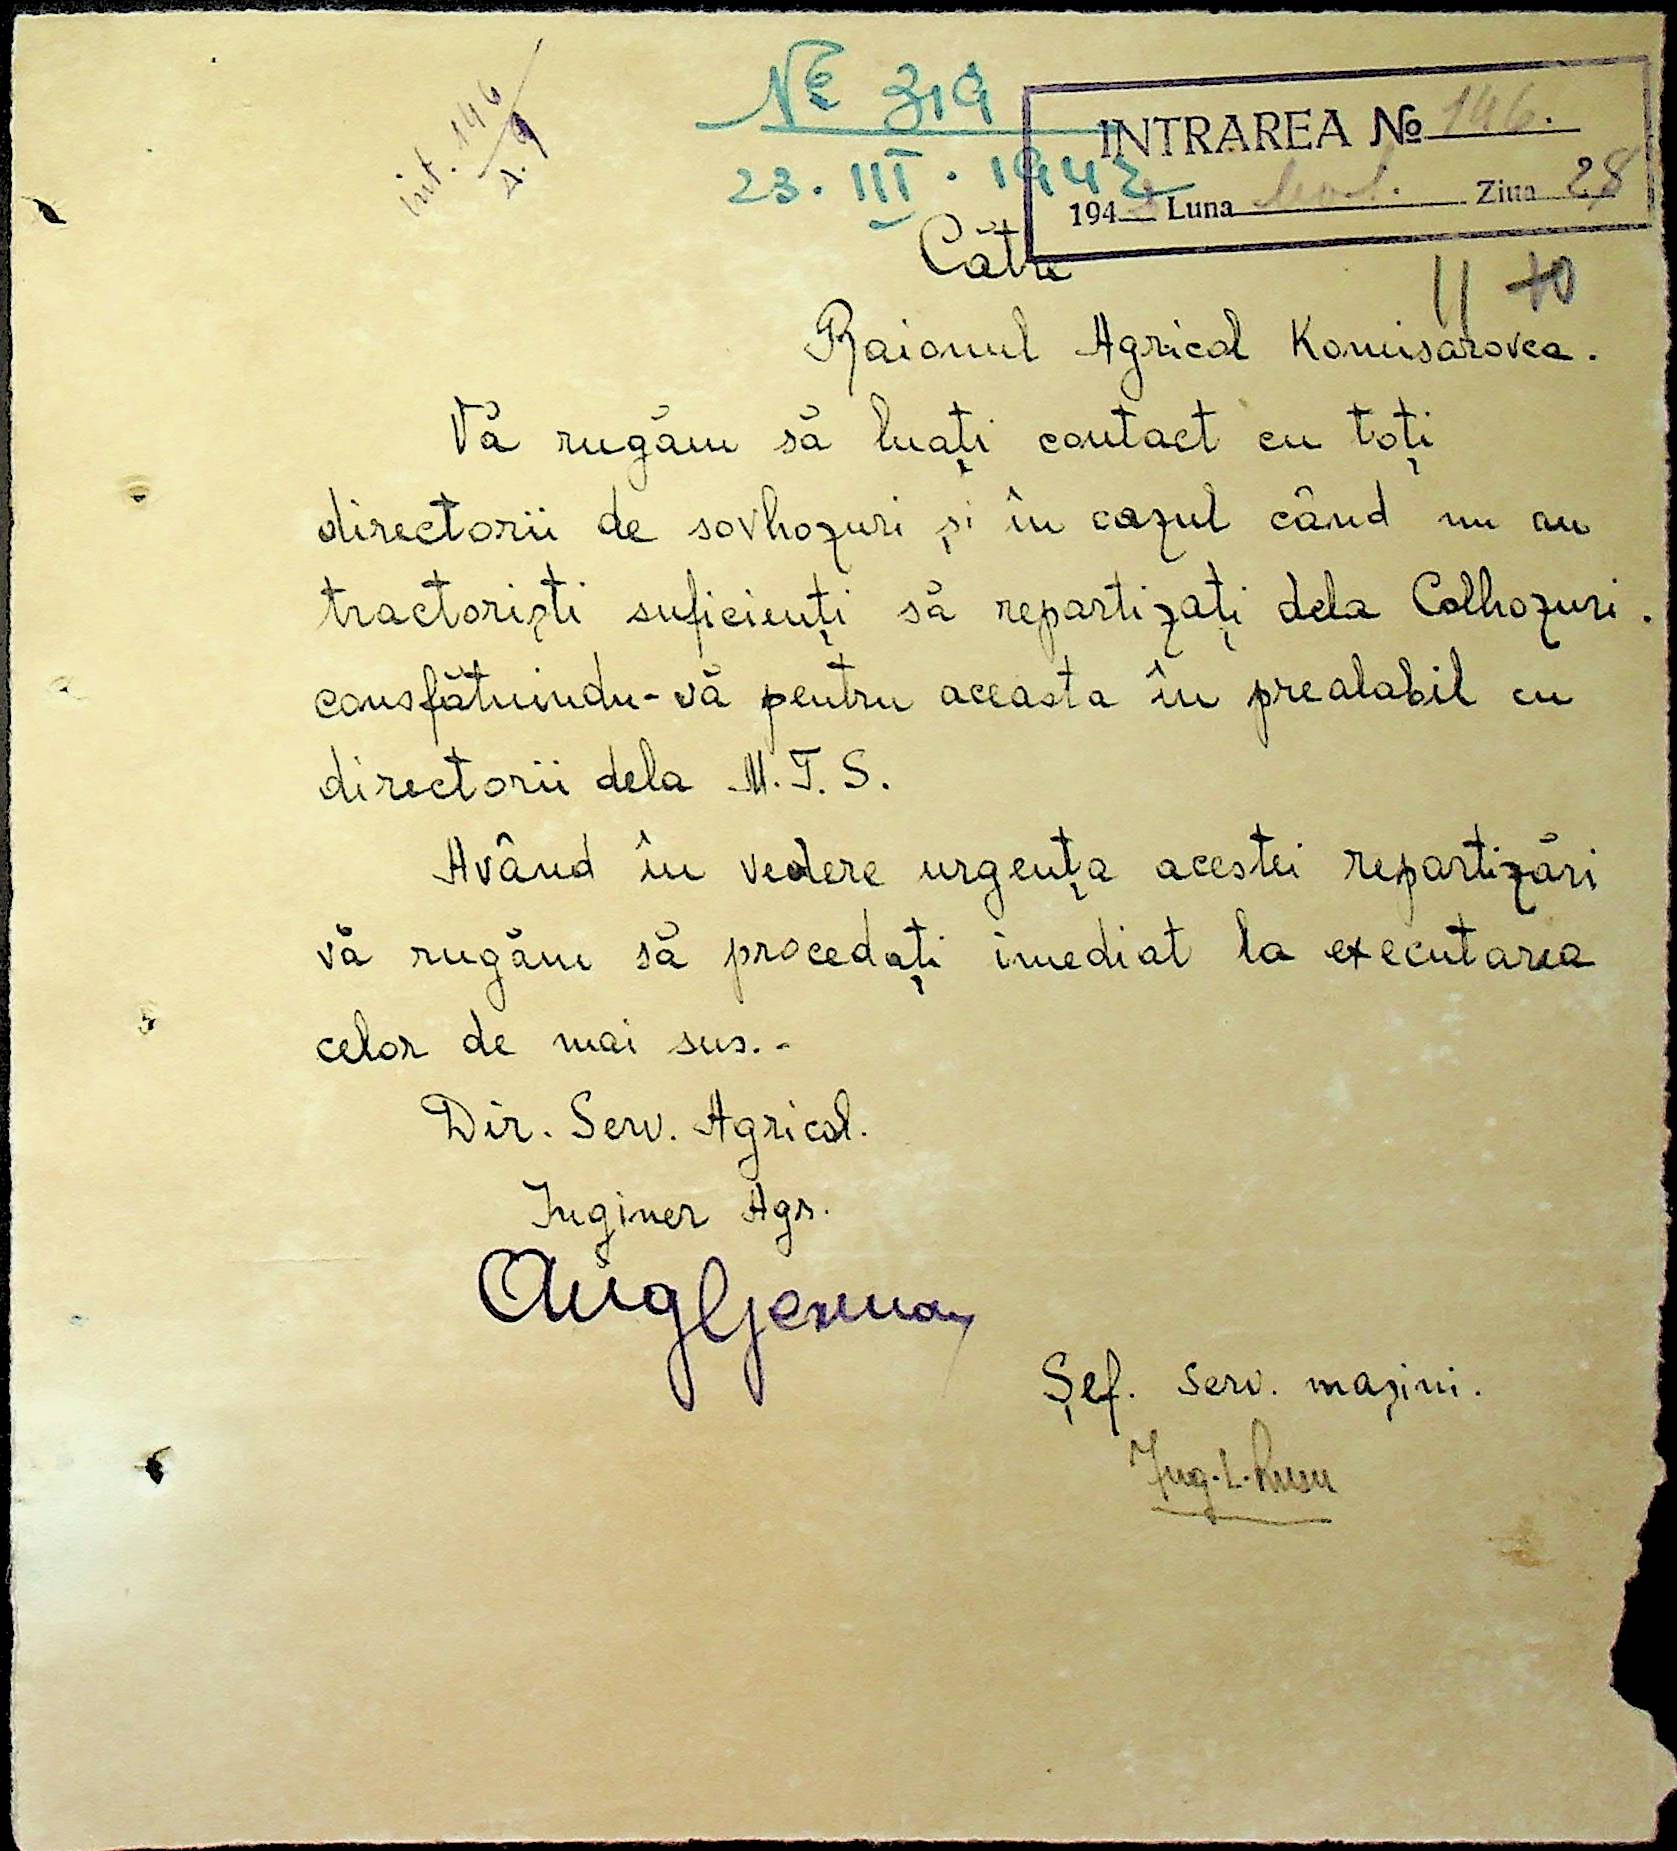 int. 146
d. 9
№ 319
23. III. 1942
INTRAREA № 146.
194 Luna Ziua 28
Către
Raionul Agricol Komisarovca.
Vă rugăm să luați contact cu toți
directorii de sovhozuri și în cazul când nu au
tractoriști suficienți să repartizați dela Colhozuri.
consfătuindu-vă pentru aceasta în prealabil cu
directorii dela M.T.S.
Având în vedere urgența acestei repartizări
vă rugăm să procedați imediat la executarea
celor de mai sus.-
Dir. Serv. Agricol.
Inginer Agr.
Șef. serv. mașini.
Ing. L. Rusu